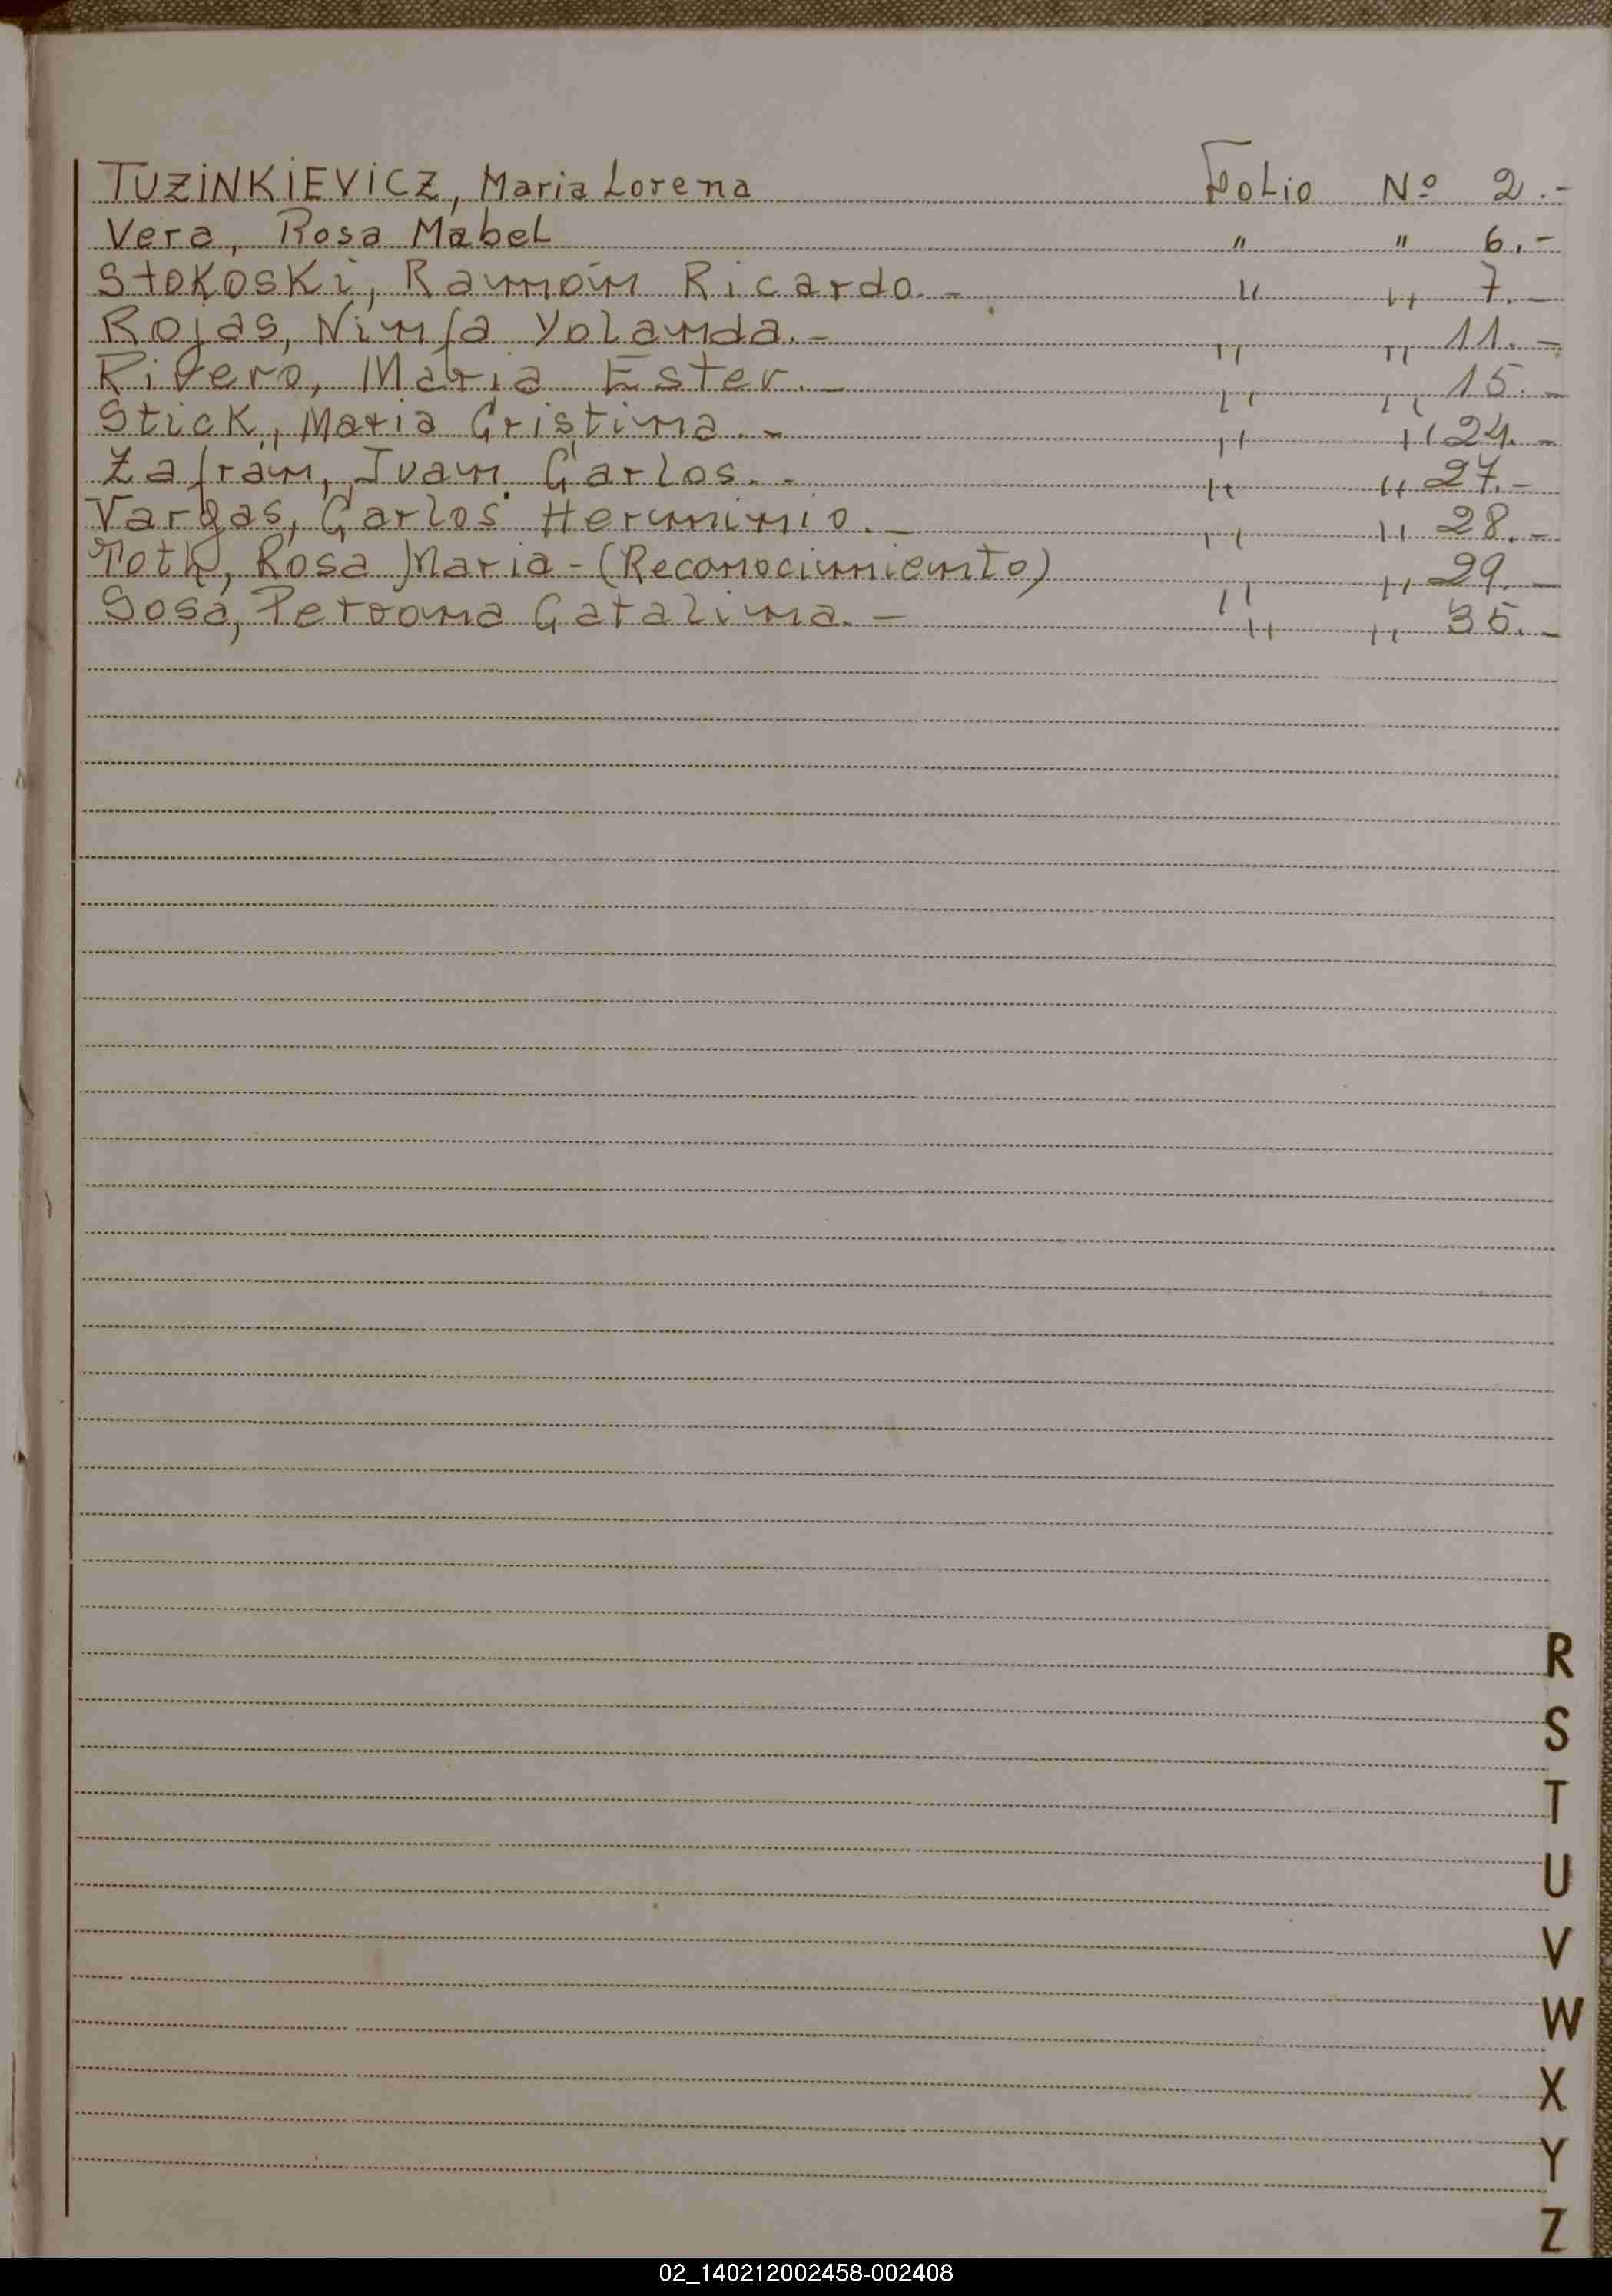 TUZINKIEVICZ, Maria Lorena Folio Nº 2.-
Vera, Rosa Mabel " " 6.-
Stokoski, Ramón Ricardo.- " " 7.-
Rojas, Ninfa Yolanda.- " " 11.-
Rivero, Maria Ester.- " " 15.-
Stick, Maria Cristina.- " " 24.-
Zafrán, Juan Carlos.- " " 27.-
Vargas, Carlos Herminio.- " " 28.-
Toth, Rosa Maria-(Reconocimiento) " " 29.-
Sosa, Petrona Catalina.- " " 35.-
R
S
T
U
V
W
X
Y
Z
02_140212002458-002408